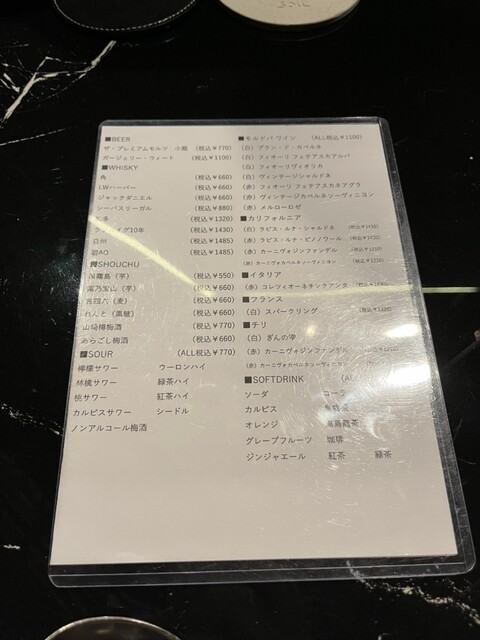 ■BEER
ザ・プレミアムモルツ 小瓶 (税込￥770)
ガージェリー・ウィート (税込￥1100)
■WHISKY
角 (税込￥660)
I.Wハーパー (税込￥660)
ジャックダニエル (税込￥660)
シーバスリーガル (税込￥880)
(税込￥1320)
10年 (税込￥1430)
白州 (税込￥1485)
碧AO (税込￥1485)
■SHOUCHU
霧島（芋） (税込￥550)
富乃宝山（芋） (税込￥660)
吉四六（麦） (税込￥660)
れんと（黒糖） (税込￥660)
山崎樽梅酒 (税込￥770)
あらごし梅酒 (税込￥660)
■SOUR (ALL税込￥770)
檸檬サワー ウーロンハイ
林檎サワー 緑茶ハイ
桃サワー 紅茶ハイ
カルピスサワー シードル
ノンアルコール梅酒
■モルドバワイン (ALL税込￥1100)
（白）ブラン・ド・カベルネ
（白）フィオーリ フェテアスカアルバ
（白）フィオーリヴィオリカ
（白）ヴィンテージシャルドネ
（赤）フィオーリ フェテアスカネアグラ
（赤）ヴィンテージカベルネソーヴィニヨン
（赤）メルローロゼ
■カリフォルニア
（白）ラピス・ルナ・シャルドネ
（赤）ラピス・ルナ・ピノノワール
（赤）カーニヴォジンファンデル
（赤）カーニヴォカベルネソーヴィニヨン
■イタリア
（赤）コレツィオーネチンクアンタ
■フランス
（白）スパークリング
■チリ
（白）ぎんの雫
（赤）カーニヴォジンファンデル
（赤）カーニヴォカベルネソーヴィニヨン
■SOFTDRINK
ソーダ コーラ
カルピス
オレンジ
グレープフルーツ 珈琲
ジンジャエール 紅茶 緑茶